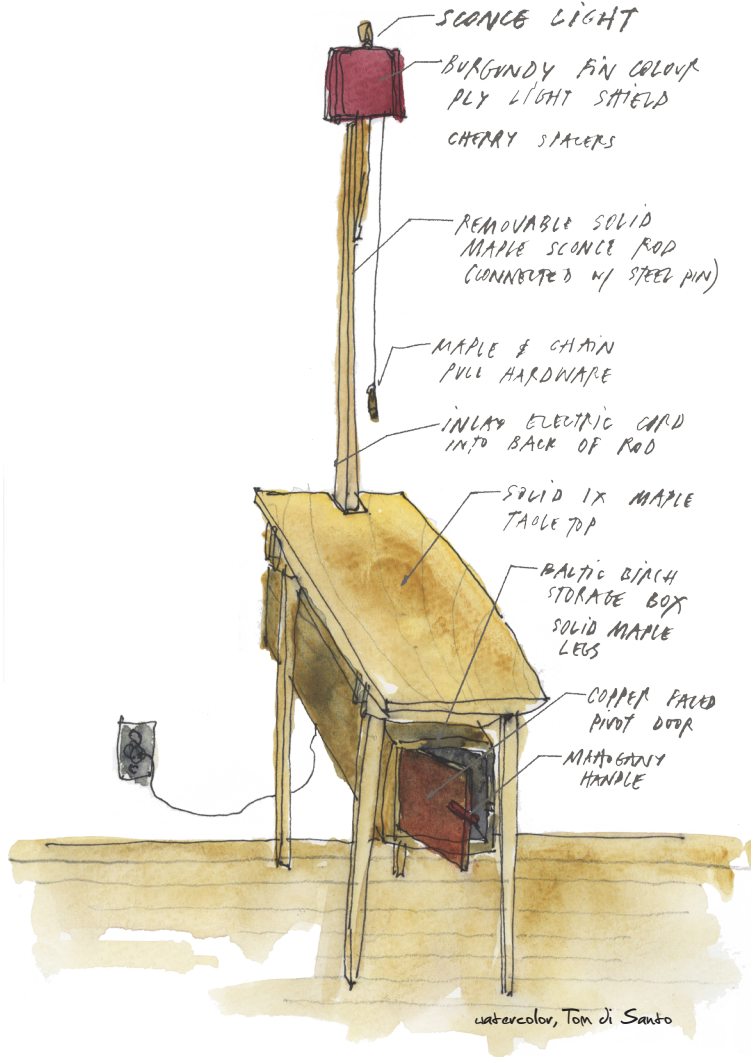 SCONCE LIGHT
BURGUNDY FIN COLOUR
PLY LIGHT SHIELD
CHERRY SPACERS
REMOVABLE SOLID
MAPLE SCONCE ROD
(CONNECTED W/ STEEL PIN)
MAPLE & CHAIN
PULL HARDWARE
INLAY ELECTRIC CORD
INTO BACK OF ROD
SOLID 1X MAPLE
TABLE TOP
BALTIC BIRCH
STORAGE BOX
SOLID MAPLE
LEGS
COPPER FACED
PIVOT DOOR
MAHOGANY
HANDLE
watercolor, Tom di Santo